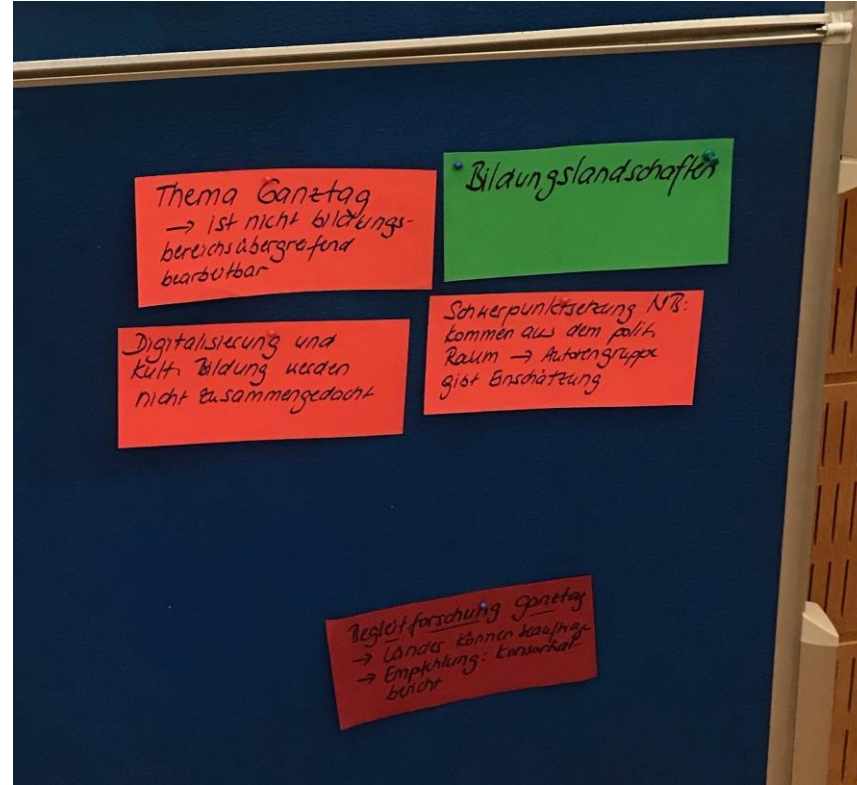 Thema Ganztag
→ ist nicht bildungs-
bereichsübergreifend
bearbeitbar
Bildungslandschaften
Digitalisierung und
Kult. Bildung werden
nicht zusammengedacht
Schwerpunktsetzung NB:
kommen aus dem polit.
Raum → Autorengruppe
gibt Einschätzung
Begleitforschung Ganztag
→ Länder können beauftrage
→ Empfehlung:
bericht